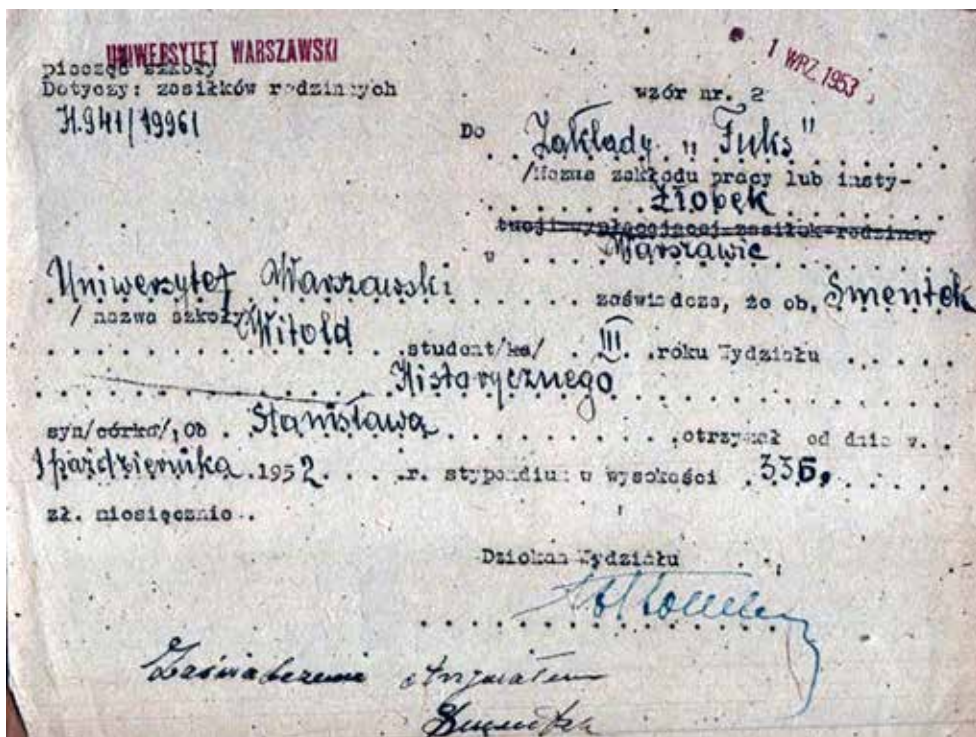 UNIWERSYTET WARSZAWSKI
1 WRZ. 1953
pieczęć szkoły
Dotyczy: zasiłków rodzinnych
wzór nr. 2
H.941/19961
Do Zakłady "Fuks"
/Nazwa zakładu pracy lub insty-
Żłobek
tucji wypłacającej zasiłek rodzinny
w Warszawie
Uniwersytet Warszawski zaświadcza, że ob. Smentek
/ nazwa szkoły/
Witold student/ka/ III roku Wydziału
Historycznego
syn/córka/, ob. Stanisława otrzymał od dnia
1 października 1952 r. stypendium w wysokości 336,
zł. miesięcznie.
Dziekan Wydziału
Zaświadczenie otrzymałem
Smentek